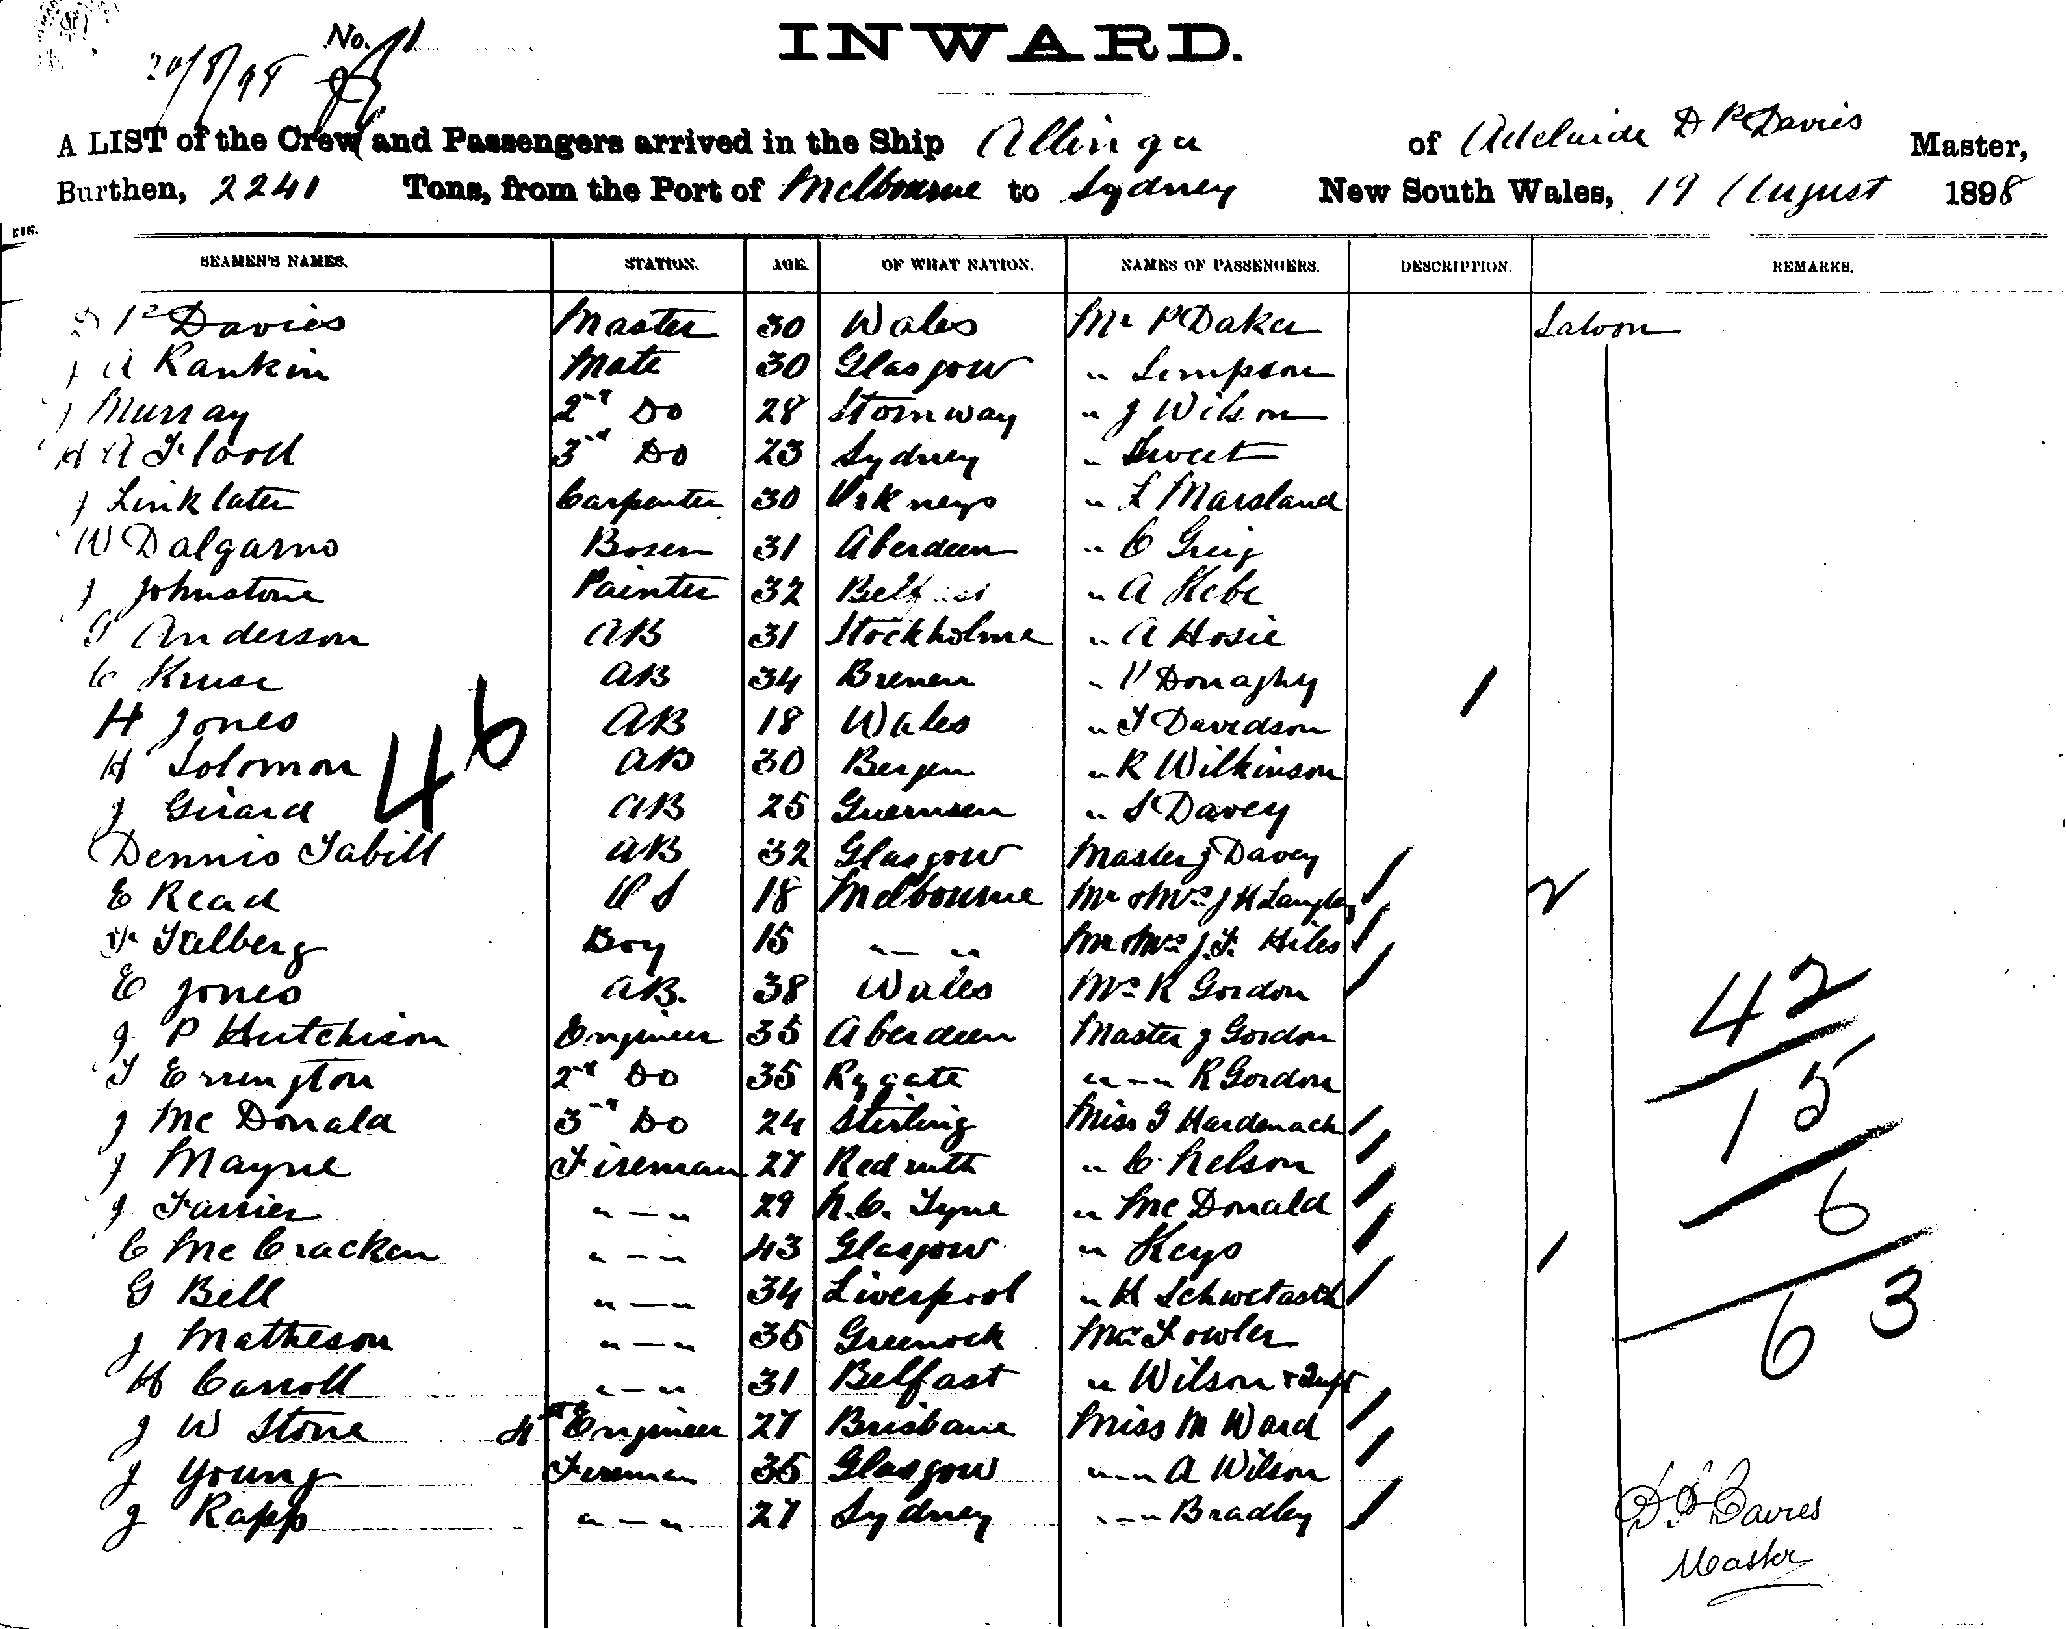 INWARD.
No. 1
20/8/98
A LIST of the Crew and Passengers arrived in the Ship Allinga of Adelaide D P Davies Master,
Burthen, 2241 Tons, from the Port of Melbourne to Sydney New South Wales, 19 August 1898
SEAMEN'S NAMES. STATION. AGE. OF WHAT NATION. NAMES OF PASSENGERS. DESCRIPTION. REMARKS.
D P Davies Master 30 Wales Mr P Daker Saloon
J A Rankin Mate 30 Glasgow " Simpson
J Murray 2nd Do 28 Stornway " J Wilson
H A Flood 3rd Do 23 Sydney " Sweet
J Linklater Carpenter 30 Orkneys " L Marsland
W Dalgarno Bosen 31 Aberdeen " C Greig
J Johnstone Painter 32 Belfast " A Kebe
G Anderson AB 31 Stockholme " A Hosie
C Kruse AB 34 Bremen " P Donaghy
H Jones AB 18 Wales " T Davidson
H Solomon AB 30 Bergen " R Wilkinson
J Girard AB 25 Guernsen " S Davey
46
Dennis Tabill AB 32 Glasgow Master J Davey
E Read OS 18 Melbourne Mr & Mrs J H Langley 2
F Talberg Boy 15 " " Mr & Mrs J. F. Hiles
E Jones AB. 38 Wales Mrs R Gordon
J P Hutchison Engineer 35 Aberdeen Master J Gordon 42
T Errington 2nd Do 35 Rygate " — " R Gordon
J McDonald 3rd Do 24 Stirling Miss G Hardenack 15
J Mayne Fireman 27 Redruth " C Nelson
J Farrier " — " 29 N.C. Tyne " McDonald 6
C McCracken " — " 43 Glasgow " Keys 1
G Bell " — " 34 Liverpool " H Schwetasch
J Matheson " — " 35 Greenock Mrs Fowler 63
H Carroll " — " 31 Belfast " Wilson & Inft
J W Stone 4th Engineer 27 Brisbane Miss M Ward
J Young Fireman 35 Glasgow " — " A Wilson
J Rapp " — " 27 Sydney " — " Bradley
D P Davies
Master